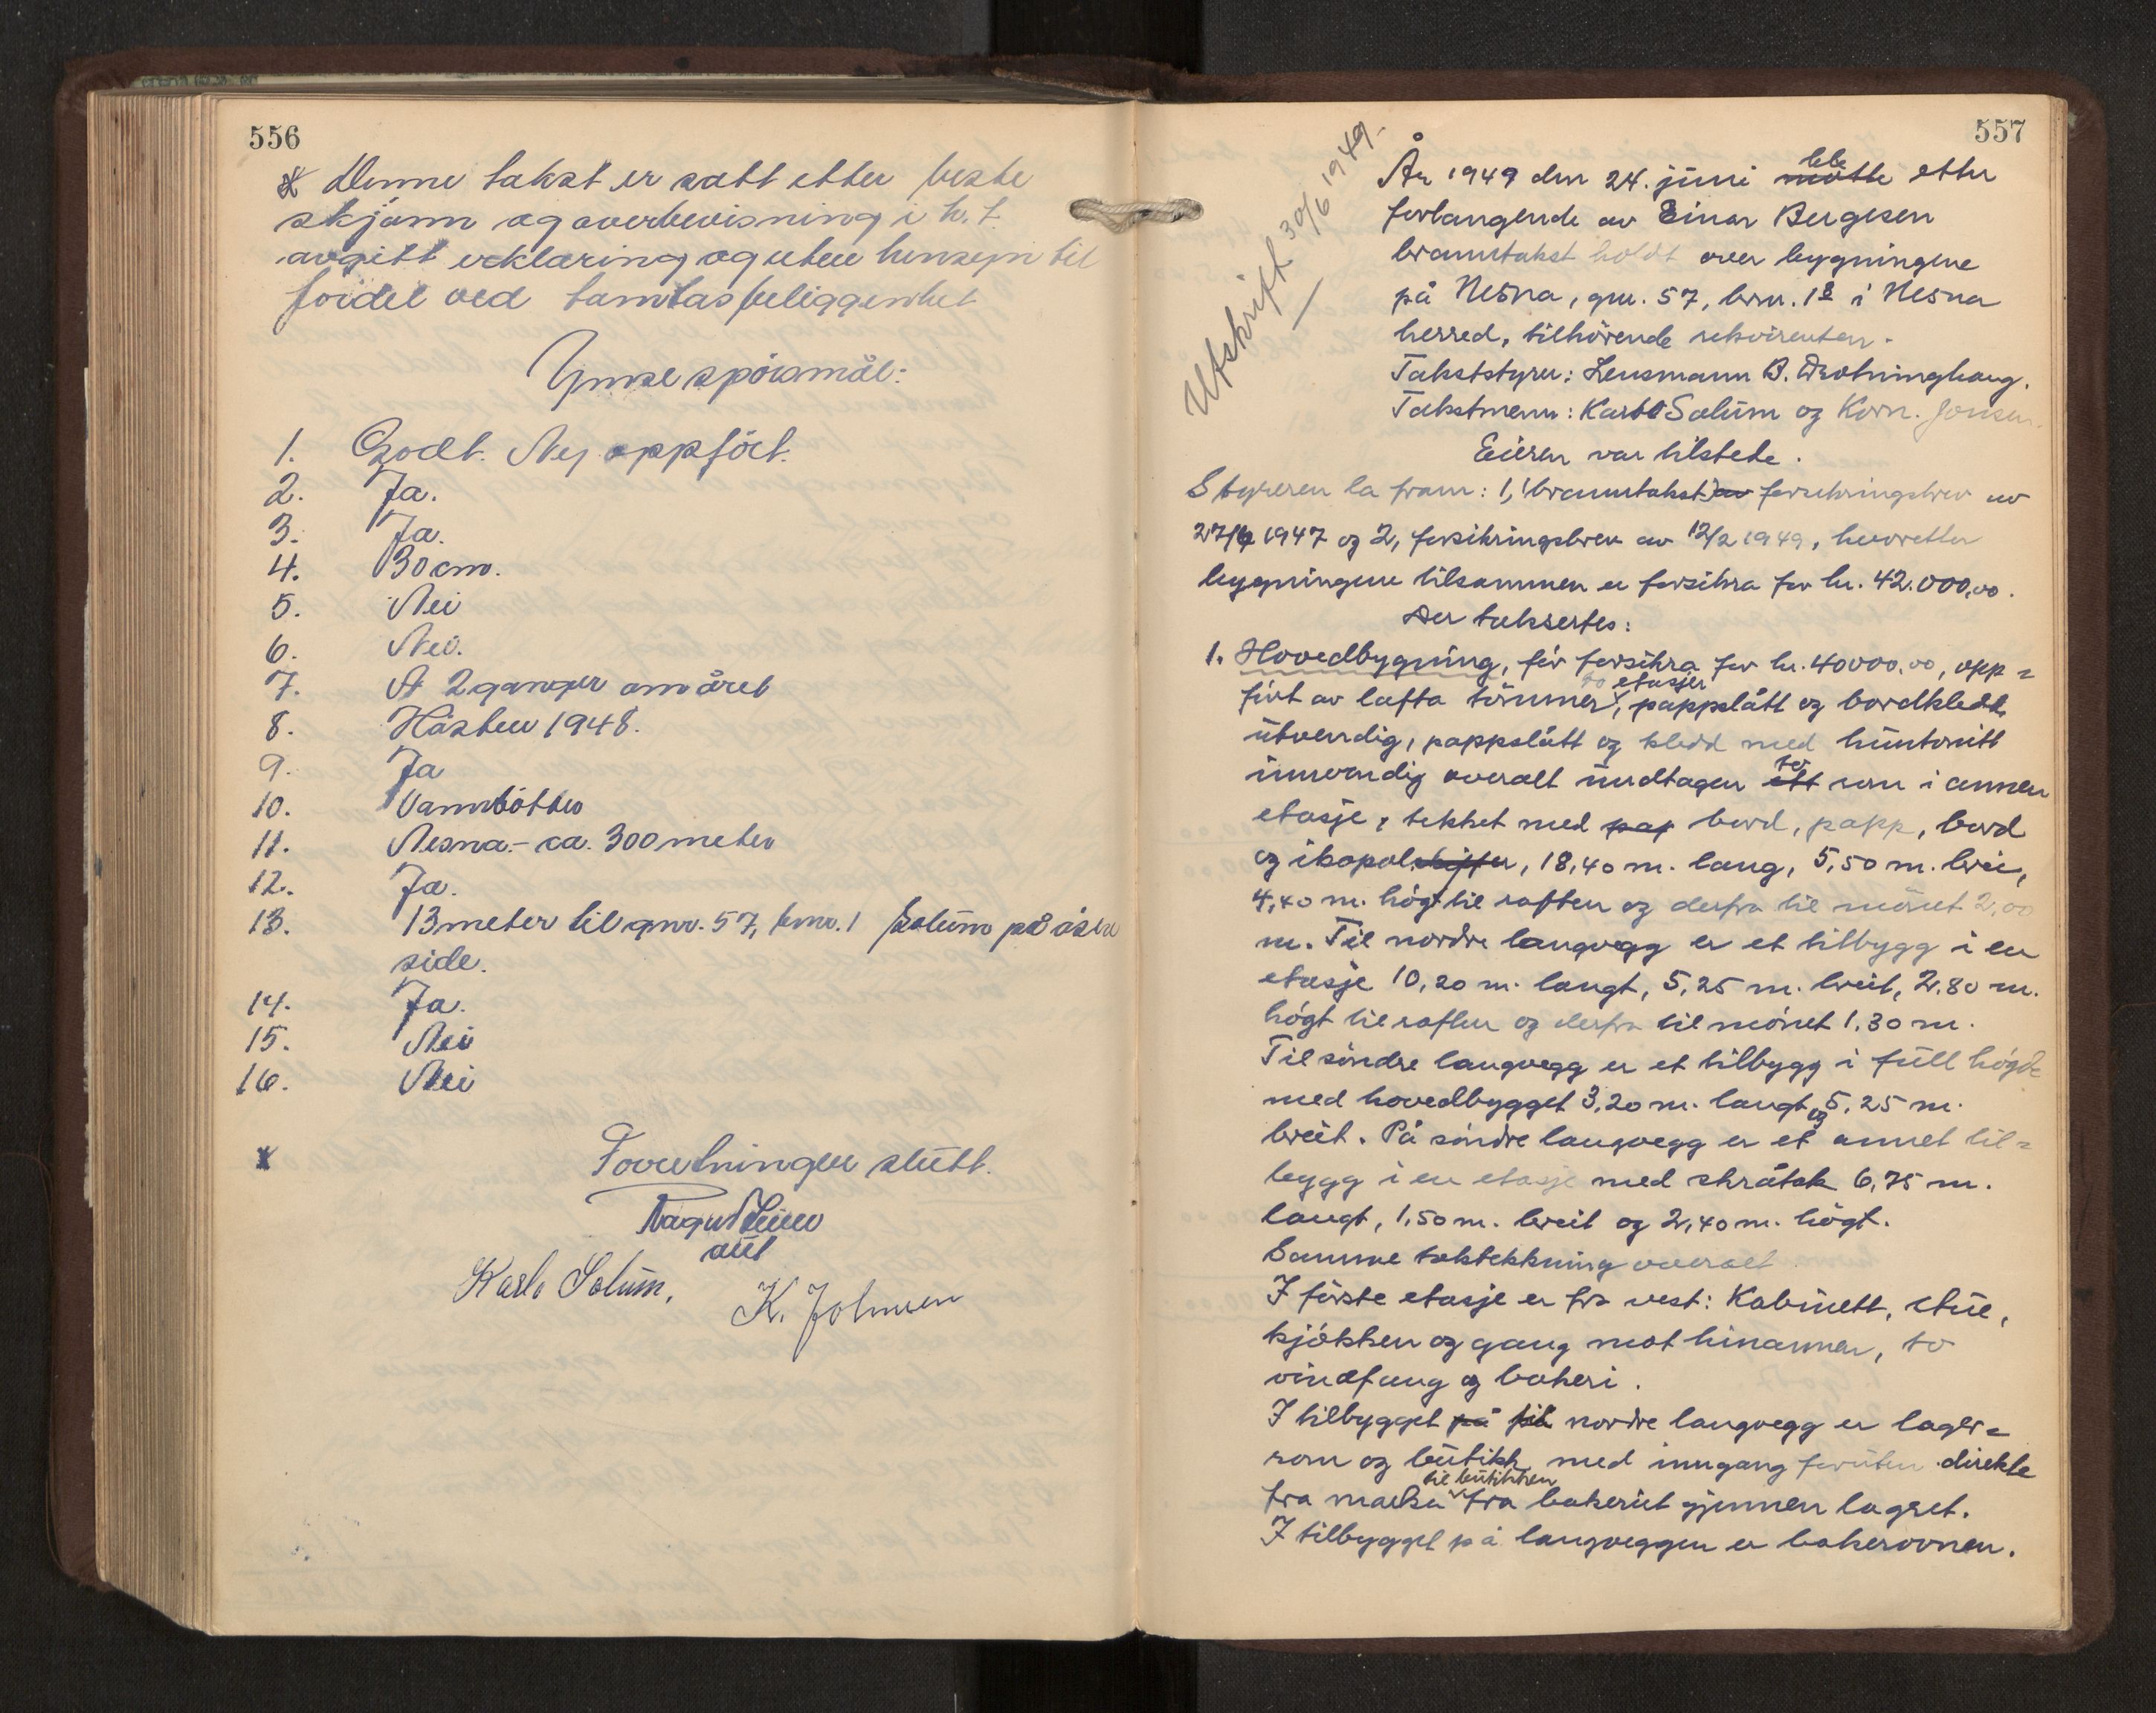 556
x Denne takst er satt etter beste
skjønn og overbevisning i h.t.
avgitt erklæring og uten hensyn til
fordel ved tomtas beliggenhet
Ymse spörsmål:
1. Godt. Ny oppfört.
2. Ja.
3. Ja.
4. 30 cm.
5. Nei
6. Nei.
7. 2 ganger om året
8. Hösten 1948.
9. Ja
10. Vannbötter
11. Nesna - ca. 300 meter
12. Ja.
13. 13 meter til gnr. 57, bnr. 1 Solüm på östre
side.
14. Ja.
15. Nei
16. Nei
x Forretningen slütt.
aüt
Karlo Solüm. K. Johnsen
557
Utskrift 30/6 1949.-
År 1949 den 24. jüni møtte ble etter
forlangende av Einar Bergesen
branntakst holdt over bygningene
på Nesna, gnr. 57, brnr. 18 i Nesna
herred, tilhörende rekvirenten.
Takststyrer: Lensmann B. Dronninghaug.
Takstmenn: Karlo Solüm og Korn. Jonsen.
Eieren var tilstede.
Styreren la fram: 1, (branntakst) av forsikringsbrev av
27/6 1947 og 2, forsikringsbrev av 12/2 1949, hvoretter
bygningene tilsammen er forsikra for kr. 42.000,00.
Der takseres:
1. Hovedbygning, för forsikra for kr. 40000.00, opp=
fört av lafta tömmer, to etasjer, pappslått og bordkledt
ütvendig, pappslått og kledd med hüntonitt
innvendig overalt ündtagen ett to rom i annen
etasje, tekket med pap bord, papp, bord
og ikopalskifter, 18,40 m. lang, 5,50 m. brei,
4,40 m. högt til raften og derfra til mönet 2,00
m. Til nordre langvegg er et tilbygg i en
etasje 10,20 m. langt, 5,25 m. breit, 2.80 m.
högt til raften og derfra til mönet 1.30 m.
Til söndre langvegg er et tilbygg i füll högde
med hovedbygget 3,20 m. langt og 5,25 m.
breit. På söndre langvegg er et annet til=
bygg i en etasje med skråtak 6,75 m.
langt, 1,50 m. breit og 2,40 m. högt.
Samme taktekkning overalt.
I förste etasje er fra vest: Kabinett, stüe,
kjökken og gang mot hinannen, to
vindfang og bakeri.
I tilbygget på til nordre langvegg er lager=
rom og bütikk med inngang foruten direkte
fra marka til bütikken fra bakeriet gjennen lagret.
I tilbygget på langveggen er bakerovnen.